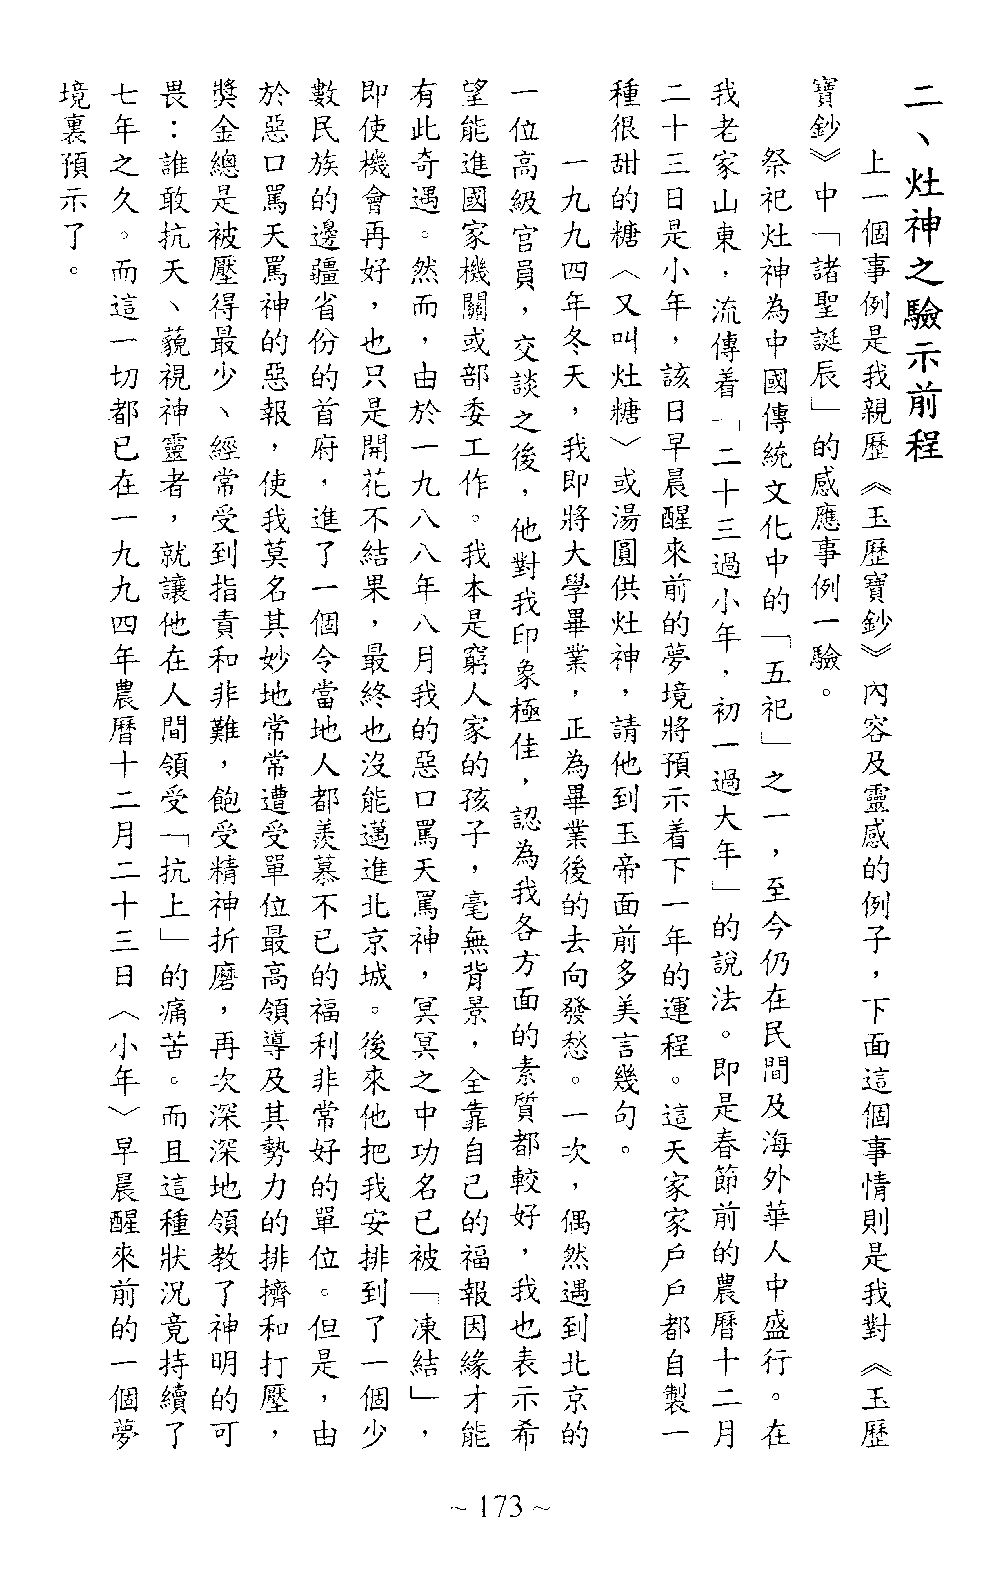 二、灶神之驗示前程
上一個事例是我親歷《玉歷寶鈔》內容及靈感的例子，下面這個事情則是我對《玉歷
寶鈔》中「諸聖誕辰」的感應事例一驗。
祭祀灶神為中國傳統文化中的「五祀」之一，至今仍在民間及海外華人中盛行。在
我老家山東，流傳着「二十三過小年，初一過大年」的說法。即是春節前的農曆十二月
二十三日是小年，該日早晨醒來前的夢境將預示着下一年的運程。這天家家戶戶都自製一
種很甜的糖（又叫灶糖）或湯圓供灶神，請他到玉帝面前多美言幾句。
一九九四年冬天，我即將大學畢業，正為畢業後的去向發愁。一次，偶然遇到北京的
一位高級官員，交談之後，他對我印象極佳，認為我各方面的素質都較好，我也表示希
望能進國家機關或部委工作。我本是窮人家的孩子，毫無背景，全靠自己的福報因緣才能
有此奇遇。然而，由於一九八八年八月我的惡口罵天罵神，冥冥之中功名已被「凍結」，
即使機會再好，也只是開花不結果，最終也沒能邁進北京城。後來他把我安排到了一個少
數民族的邊疆省份的首府，進了一個令當地人都羨慕不已的福利非常好的單位。但是，由
於惡口罵天罵神的惡報，使我莫名其妙地常常遭受單位最高領導及其勢力的排擠和打壓，
獎金總是被壓得最少、經常受到指責和非難，飽受精神折磨，再次深深地領教了神明的可
畏：誰敢抗天、藐視神靈者，就讓他在人間領受「抗上」的痛苦。而且這種狀況竟持續了
七年之久。而這一切都已在一九九四年農曆十二月二十三日（小年）早晨醒來前的一個夢
境裏預示了。
~ 173 ~